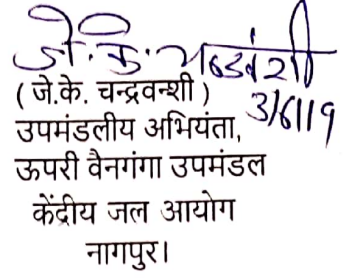 (जे.के. चन्द्रवन्शी)
3/6/19
उपमंडलीय अभियंता,
ऊपरी वैनगंगा उपमंडल
केंद्रीय जल आयोग
नागपुर।